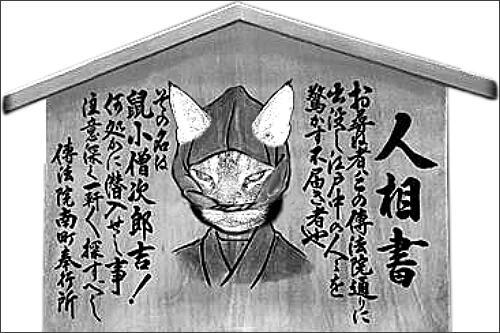 人相書
お尋ね者、この傳法院通りに
出没し江戸中の人々を
驚かす不届き者也
その名は
鼠小僧次郎吉!
何処かに潜入せし事
注意深く一軒一軒探すべし
傳法院南町奉行所